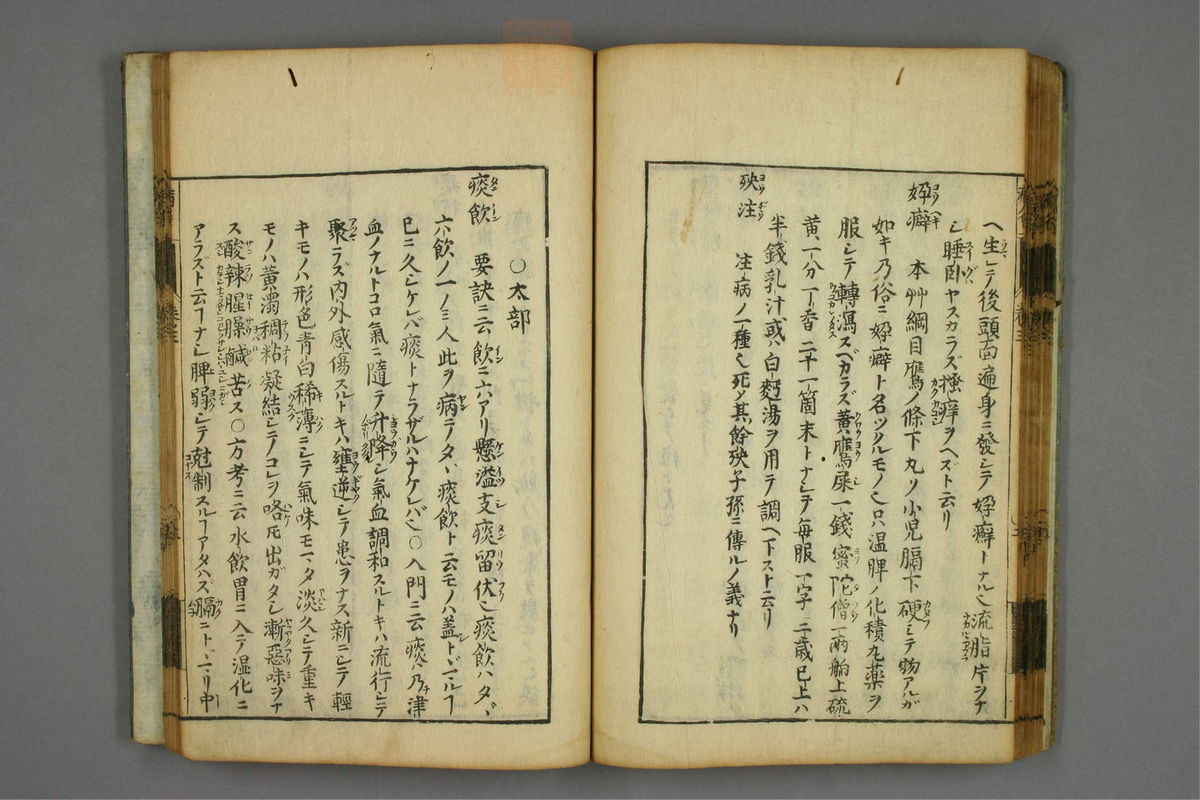 へ生乄後頭面遍身ニ發乄妳癬トナル也流脂片ヲナ
シ睡臥ヤスカラズ搔痒ヲヘズト云リ
妳癖 本艸綱目鷹ノ條下凢ソ小児膈下硬乄物アルガ
如キ乃俗ニ妳癖ト名ツルモノ也只温脾ノ化積丸薬ヲ
服シテ轉瀉スベカラズ黄鷹屎一錢蜜陀僧一兩舶上硫
黄一分丁香二十一箇末トナシテ毎服一字二歳已上ハ
半錢乳汁或ハ白麪湯ヲ用テ調ヘ下スト云リ
殃注 注病ノ一種也死乄其餘殃子孫ニ傳ルノ義ナリ
○太部
痰飲 要訣ニ云飲ニ六ハアリ懸溢支痰留伏也痰飲ハタヾ
六飲ノ一ノミ人此ヲ病テタヾ痰飲ト云モノハ蓋トヾマルヿ
已ニ久シケレバ痰トナラザルハナケレバ也○入門ニ云痰ハ乃チ津
血ノナルトコロ氣ニ隨テ升降シ氣血調和スルトキハ流行シテ
聚ラズ内外感傷スルトキハ壅逆シテ患ヲナス新ニシテ輕
キモノハ形色青白稀薄ニシテ氣味モマタ淡久シテ重キ
モノハ黄濁稠粘凝結シテコレヲ咯𪜈出ガタシ漸惡味ヲナ
ス酸辣腥臊鹹苦ス○方考ニ云水飲胃ニ入テ湿化ニ
アラズト云ヿナシ脾弱シテ尅制スルヿアタハズ膈ニトヾマリ中